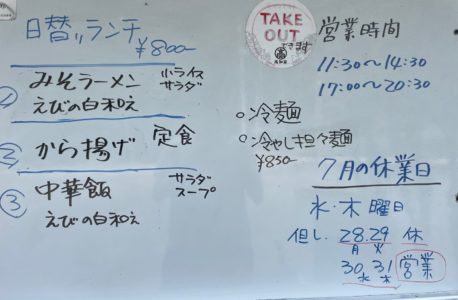 日替リランチ
¥800
① みそラーメン 小ライス サラダ
えびの白和え
② から揚げ 定食
③ 中華飯 サラダ スープ
えびの白和え
TAKE OUT
できます
○冷麺
○冷やし担々麺
¥850
営業時間
11:30〜14:30
17:00〜20:30
7月の休業日
水・木曜日
但し、28.29 休
月 火
30 31 営業
水 木